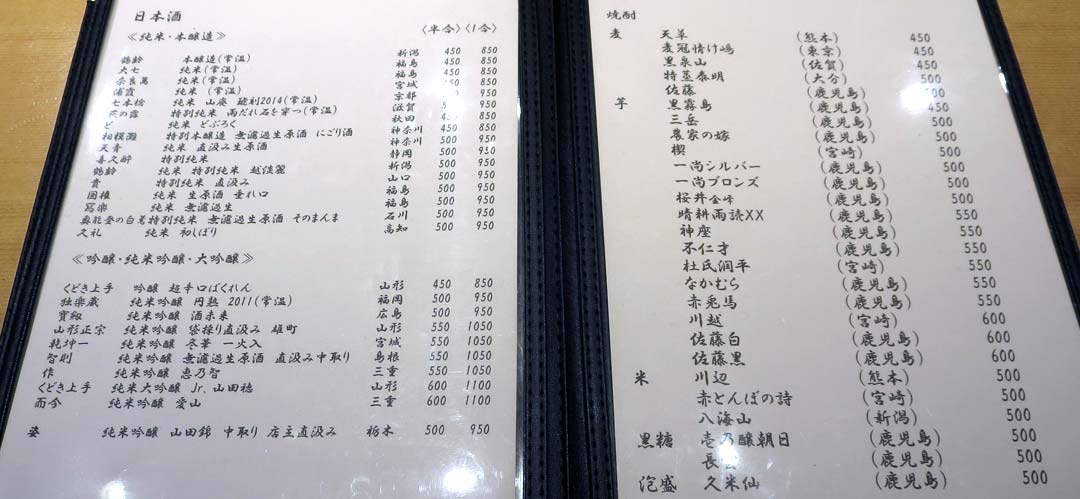 日本酒
〈半合〉〈1合〉
≪純米・本醸造≫
鶴齢 本醸造(常温) 新潟 450 850
大七 純米(常温) 福島 450 850
奈良萬 純米(常温) 福島 450 850
浦霞 純米 (常温) 宮城 450 850
七本槍 純米 山廃 2014(常温) 京都 450 850
萩の露 特別純米 雨だれ石を穿つ(常温) 滋賀 450 850
ど 純米 どぶろく 秋田 450 850
相模灘 特別本醸造 無濾過生原酒 にごり酒 神奈川 450 850
天青 純米 直汲み生原酒 神奈川 500 950
喜久酔 特別純米 静岡 500 950
鶴齢 純米 特別純米 越淡麗 新潟 500 950
貴 特別純米 直汲み 山口 500 950
国権 純米 生原酒 垂れ口 福島 500 950
冩樂 純米 無濾過生 福島 500 950
奥能登の白菊 特別純米 無濾過生原酒 そのまんま 石川 500 950
久礼 純米 初しぼり 高知 500 950
≪吟醸・純米吟醸・大吟醸≫
くどき上手 吟醸 超辛口ばくれん 山形 450 850
独楽蔵 純米吟醸 円熟 2011(常温) 福岡 500 950
寶剱 純米吟醸 酒未来 広島 500 950
山形正宗 純米吟醸 袋採り直汲み 雄町 山形 550 1050
乾坤一 純米吟醸 冬華 一火入 宮城 550 1050
智則 純米吟醸 無濾過生原酒 直汲み中取り 島根 550 1050
作 純米吟醸 恵乃智 三重 550 1050
くどき上手 純米大吟醸 Jr.山田穂 山形 600 1100
而今 純米吟醸 愛山 三重 600 1100
姿 純米吟醸 山田錦 中取り 店主直汲み 栃木 500 950
焼酎
麦 天草 (熊本) 450
麦冠情け嶋 (東京) 450
黒泉山 (佐賀) 450
特蒸泰明 (大分) 500
佐藤 (鹿児島) 500
芋 黒霧島 (鹿児島) 450
三岳 (鹿児島) 500
農家の嫁 (鹿児島) 500
楔 (宮崎) 500
一尚シルバー (鹿児島) 500
一尚ブロンズ (鹿児島) 500
桜井金峰 (鹿児島) 500
晴耕雨読XX (鹿児島) 550
神座 (鹿児島) 550
不仁才 (鹿児島) 550
杜氏潤平 (宮崎) 550
なかむら (鹿児島) 550
赤兎馬 (鹿児島) 550
川越 (宮崎) 600
佐藤白 (鹿児島) 600
佐藤黒 (鹿児島) 600
米 川辺 (熊本) 500
赤とんぼの詩 (宮崎) 500
八海山 (新潟) 500
黒糖 壱乃醸朝日 (鹿児島) 500
長 (鹿児島) 500
泡盛 久米仙 (鹿児島) 500